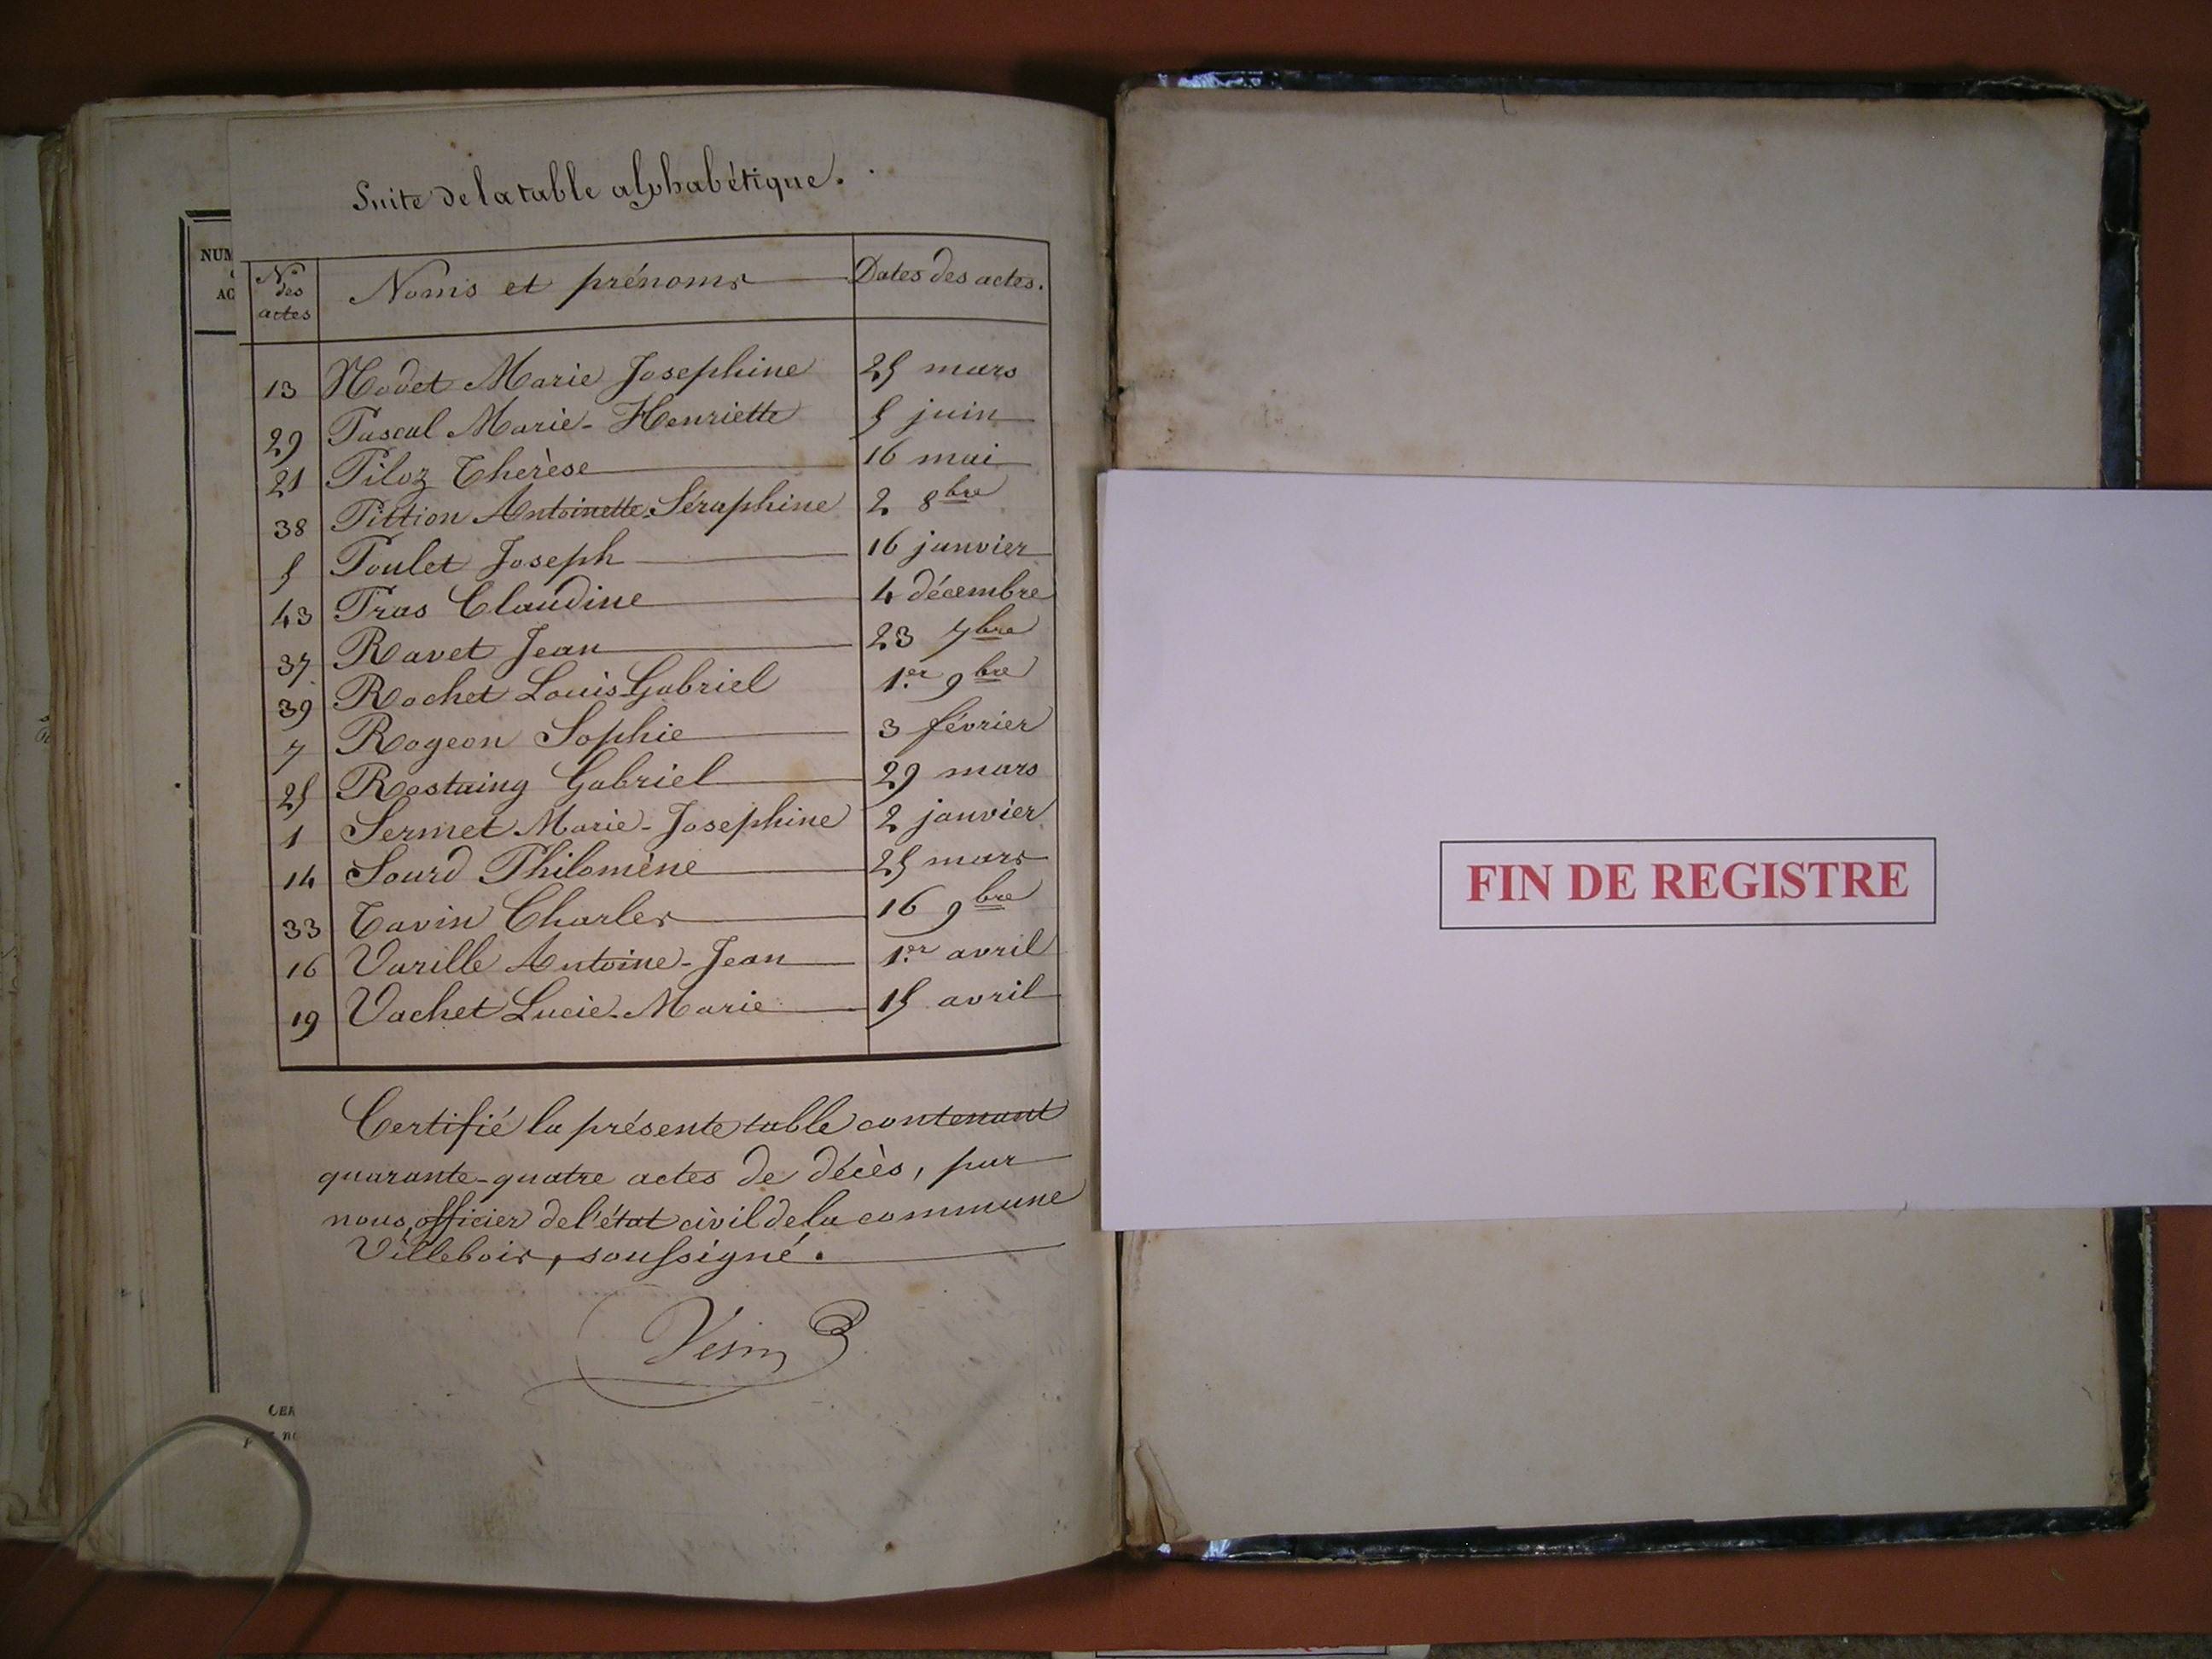 Suite de la table alphabétique.
NUM
AC
Nos des actes | Noms et prénoms | Dates des actes.
13 Nodet Marie Josephine 25 mars
29 Pascal Marie-Henriette 5 juin
21 Piloz Therèse 16 mai
38 Pittion Antoinette-Séraphine 2 8bre
5 Poulet Joseph 16 janvier
43 Pras Claudine 4 décembre
37 Ravet Jean 23 7bre
39 Rochet Louis Gabriel 1er 9bre
7 Rogeon Sophie 3 février
25 Rostaing Gabriel 29 mars
1 Sermet Marie-Josephine 2 janvier
14 Sourd Philomène 25 mars
33 Tavin Charles 16 9bre
16 Varille Antoine-Jean 1er avril
19 Vachet Lucie-Marie 15 avril
Certifié la présente table contenant
quarante-quatre actes de décès, par
nous, officier de l'état civil de la commune
Villebois, soussigné.
Vésin
CER
FIN DE REGISTRE